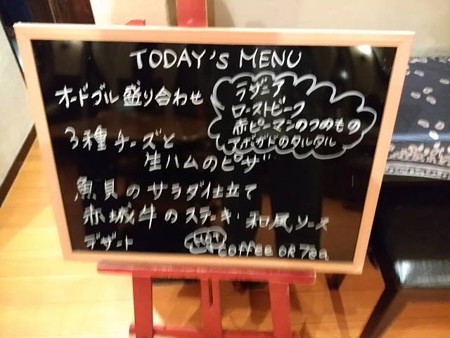 TODAY'S MENU
オードブル盛り合わせ
ラザニア
ローストビーフ
赤ピーマンのつめもの
アボガドのタルタル
3種チーズと
生ハムのピザ
魚貝のサラダ仕立て
赤城牛のステーキ 和風ソース
デザート
Coffee or Tea